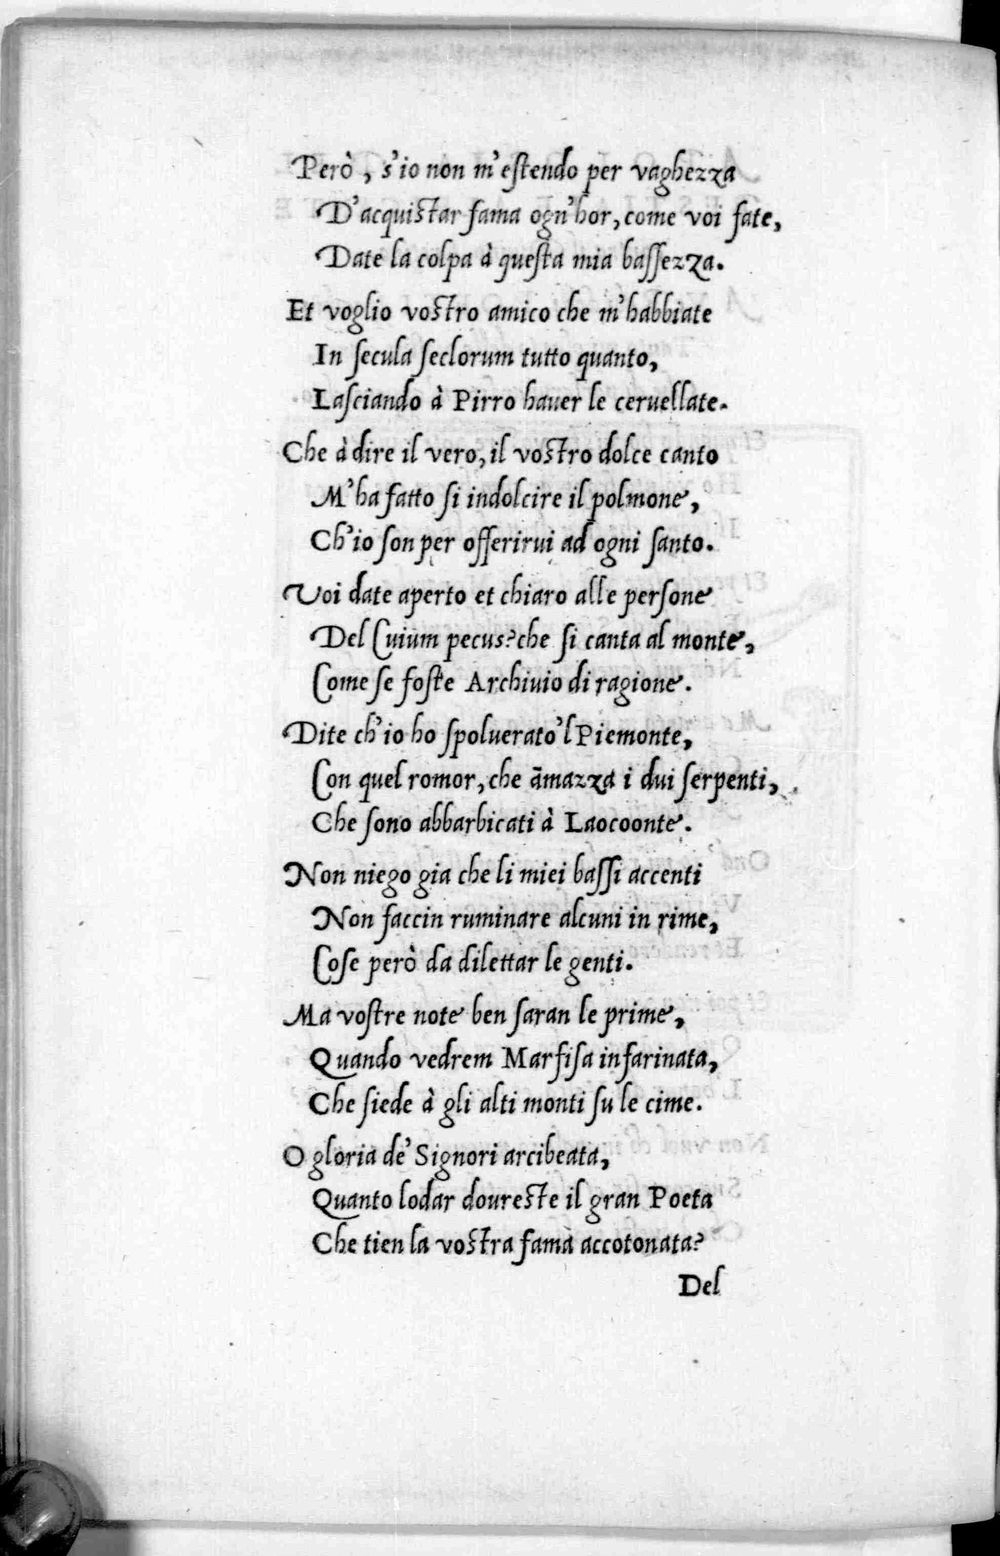 Però, s'io non m'estendo per vaghezza
D'acquistar fama ogn'hor, come voi fate,
Date la colpa à questa mia bassezza.
Et voglio vostro amico che m'habbiate
In secula seclorum tutto quanto,
Lasciando à Pirro hauer le ceruellate.
Che à dire il vero, il vostro dolce canto
M'ha fatto si indolcire il polmone,
Ch'io son per offerirui ad ogni santo.
Voi date aperto et chiaro alle persone
Del Cuium pecus? che si canta al monte,
Come se foste Archiuio di ragione.
Dite ch'io ho spoluerato'l Piemonte,
Con quel romor, che āmazza i dui serpenti,
Che sono abbarbicati à Laocoonte.
Non niego gia che li miei bassi accenti
Non faccin ruminare alcuni in rime,
Cose però da dilettar le genti.
Ma vostre note ben saran le prime,
Quando vedrem Marfisa infarinata,
Che siede à gli alti monti su le cime.
O gloria de' Signori arcibeata,
Quanto lodar doureste il gran Poeta
Che tien la vostra fama accotonata?
Del